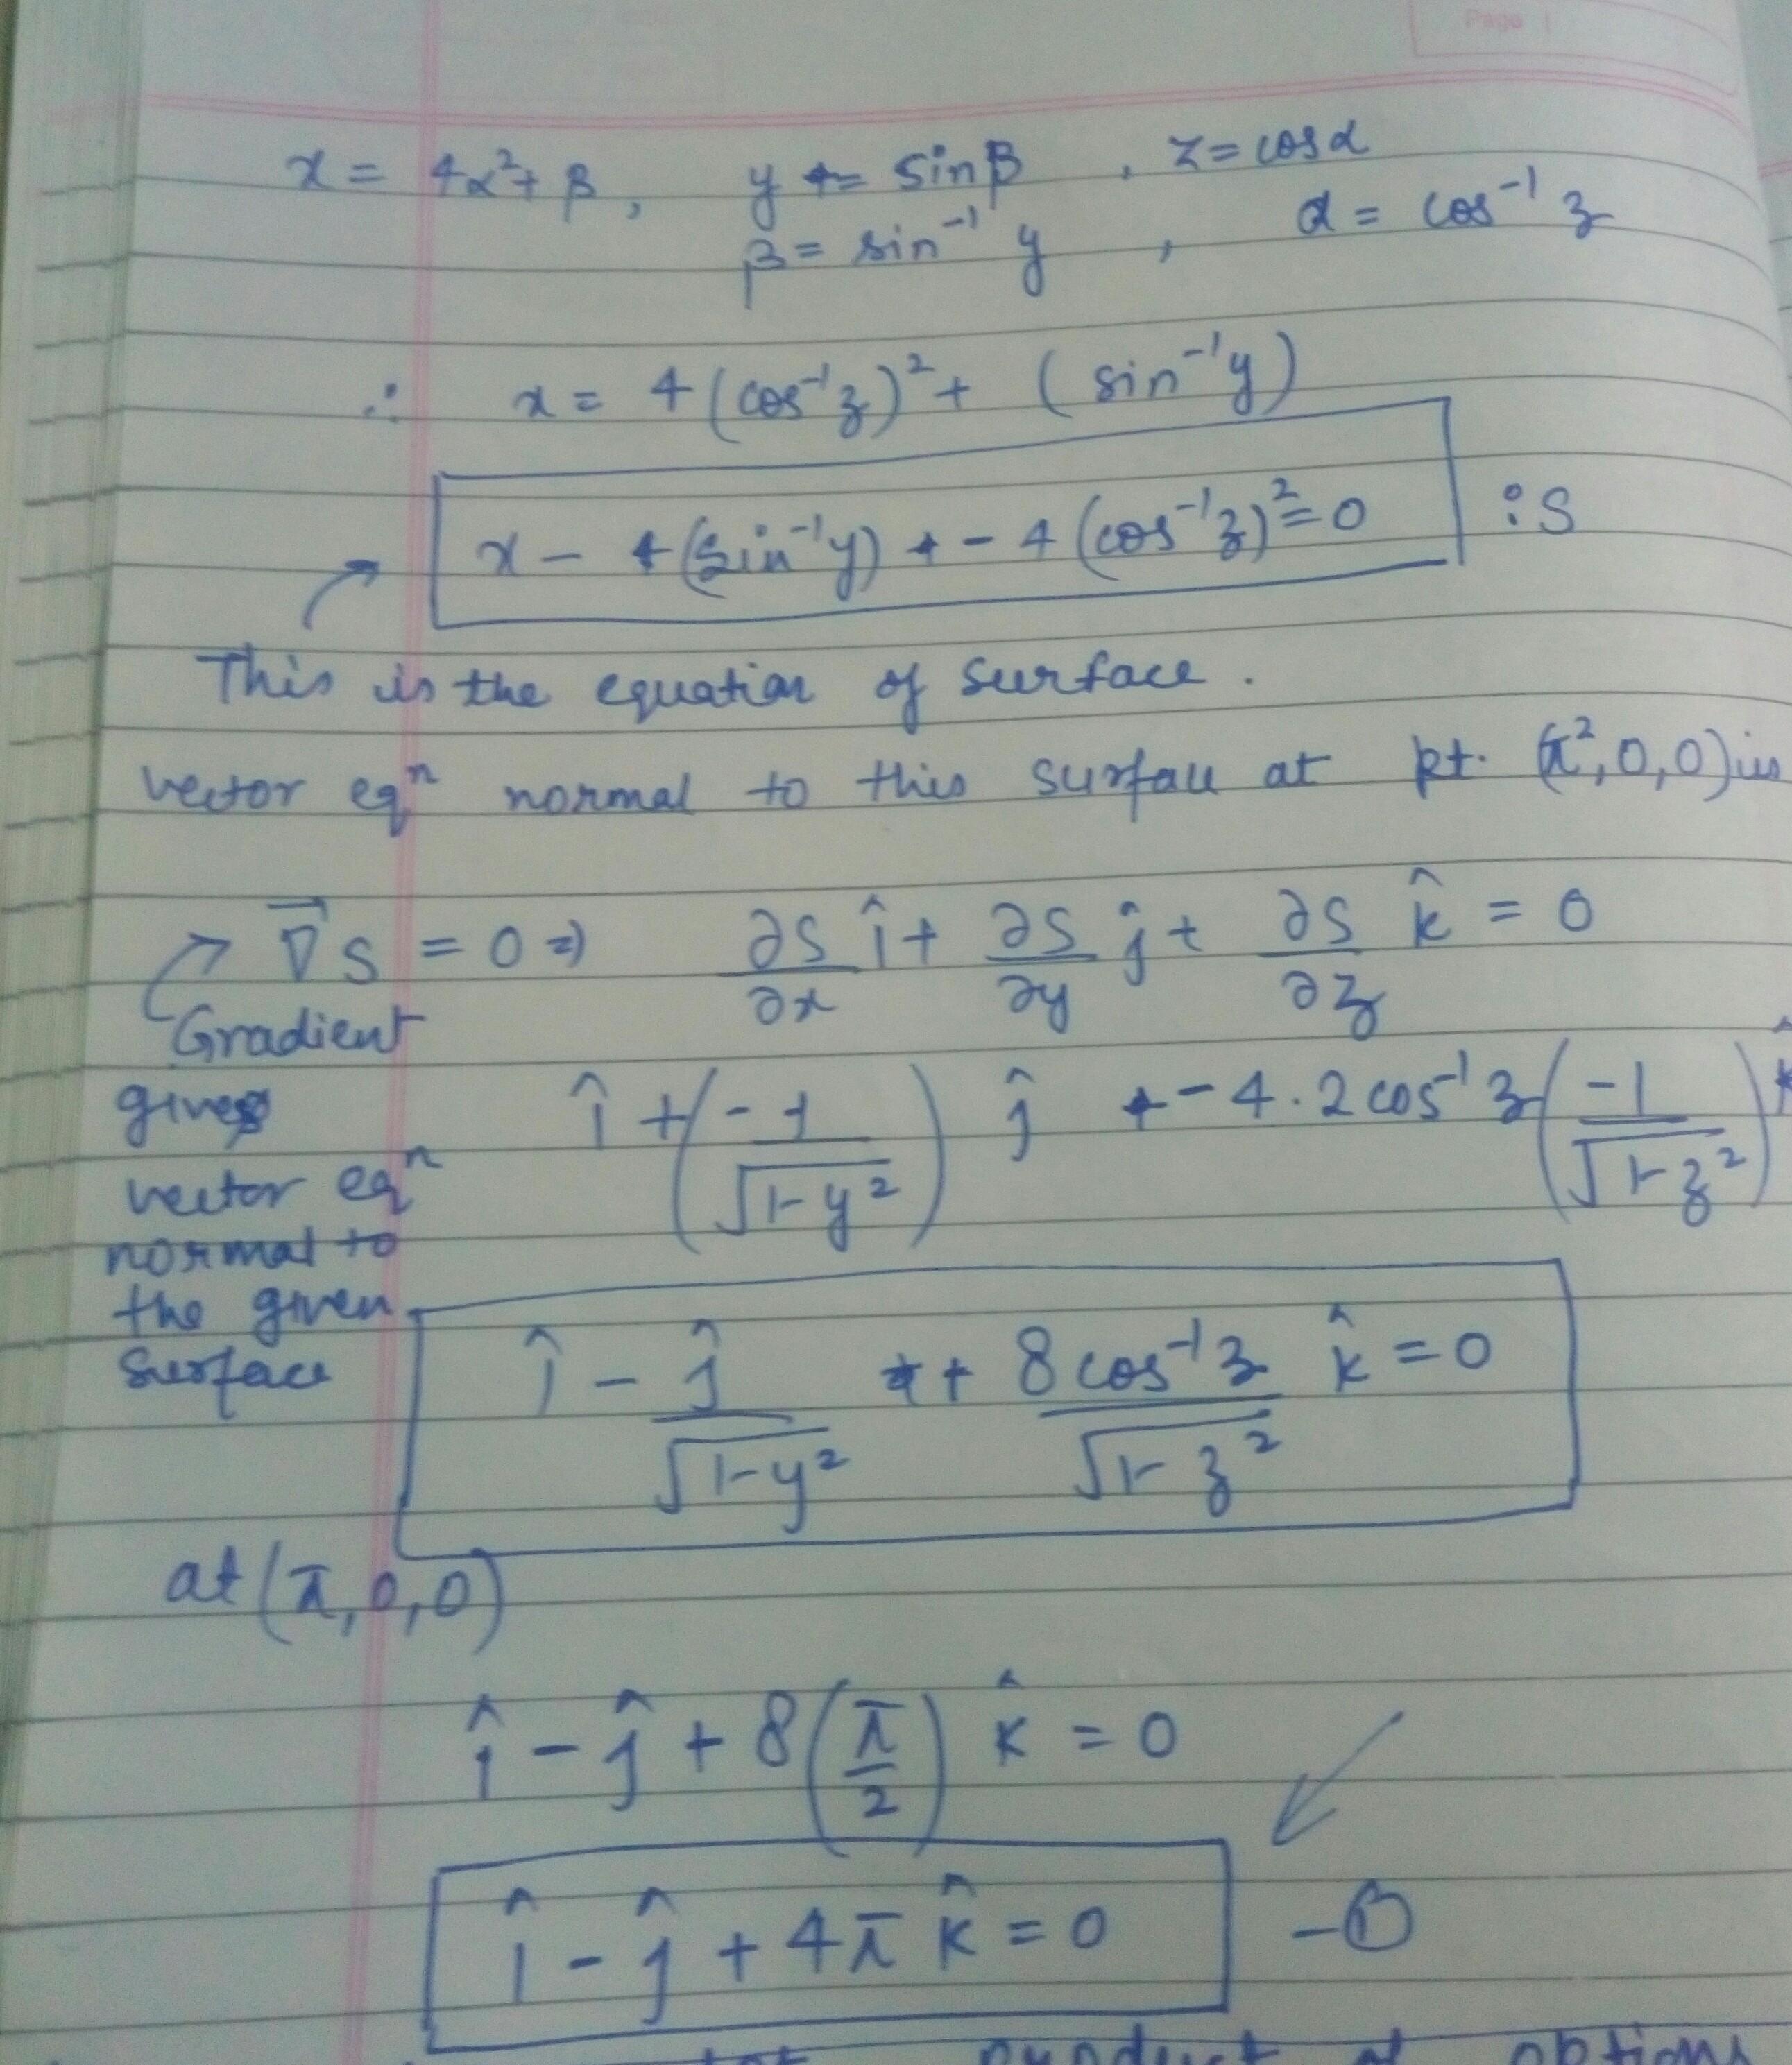 Page
x = 4α² + β, y = sinβ, z = cosα
β = sin⁻¹ y, α = cos⁻¹ z
∴ x = 4(cos⁻¹z)² + (sin⁻¹y)
x - (sin⁻¹y) - 4(cos⁻¹z)² = 0 : S
This is the equation of surface.
vector eqⁿ normal to this surface at pt. (π², 0, 0) is
∇S = 0 ⇒ ∂S/∂x î + ∂S/∂y ĵ + ∂S/∂z k̂ = 0
Gradient
gives
vector eqⁿ
normal to
the given
surface
î + (-1/√(1-y²)) ĵ - 4.2cos⁻¹z (-1/√(1-z²)) k̂
î - ĵ/√(1-y²) + 8cos⁻¹z/√(1-z²) k̂ = 0
at (π, 0, 0)
î - ĵ + 8(π/2) k̂ = 0
î - ĵ + 4π k̂ = 0 - B
product of options